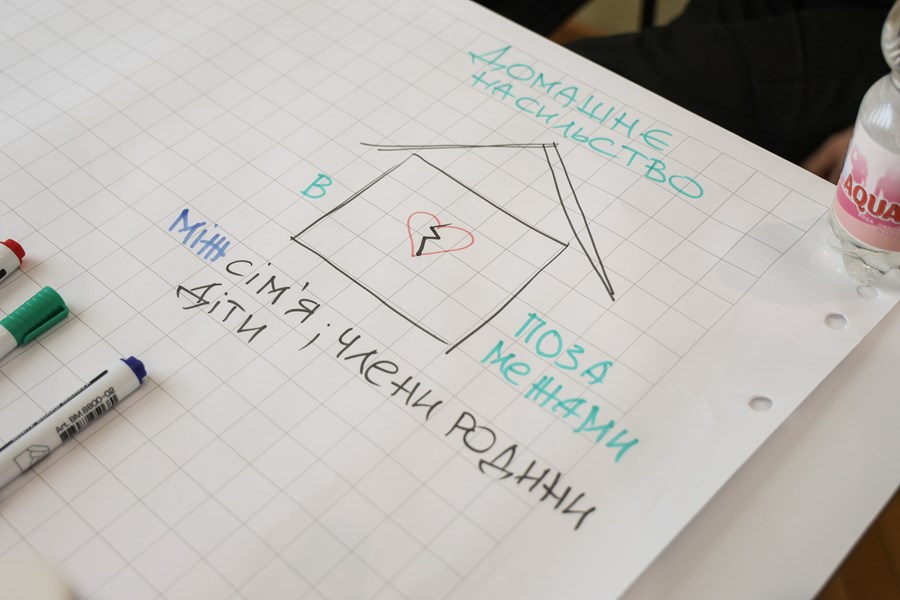 ДОМАШНЄ
НАСИЛЬСТВО
В
МІЖ СІМ'Я; ЧЛЕНИ РОДИНИ
ДІТИ
ПОЗА
МЕЖАМИ
AQUA
Art. BM.8800-02